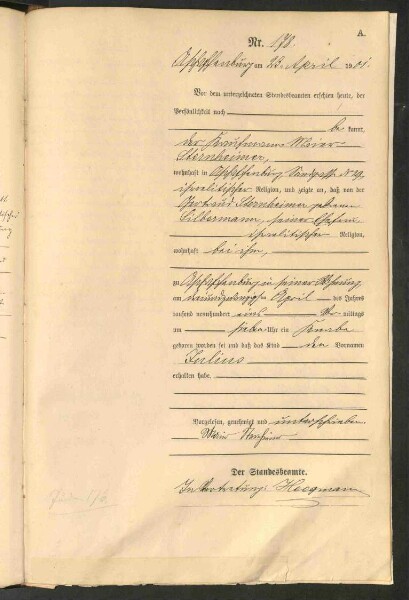 A.
Nr. 178.
Aschaffenburg am 23. April 1901.
Vor dem unterzeichneten Standesbeamten erschien heute, der
Persönlichkeit nach
be kannt,
der Kaufmann Maier
Sternheimer,
wohnhaft in Aschaffenburg, Sandgasse N 49,
israelitischer Religion, und zeigte an, daß von der
Sternheimer geborene
Silbermann, seiner Ehefrau,
israelitischer Religion,
wohnhaft bei ihm,
zu Aschaffenburg in seiner Wohnung
am April des Jahres
tausend neunhundert eins Vor mittags
um Uhr ein Knabe
geboren worden sei und daß das Kind den Vornamen
Julius
erhalten habe.
Vorgelesen, genehmigt und unterschrieben
Maier Sternheimer
Der Standesbeamte.
In Vertretung: